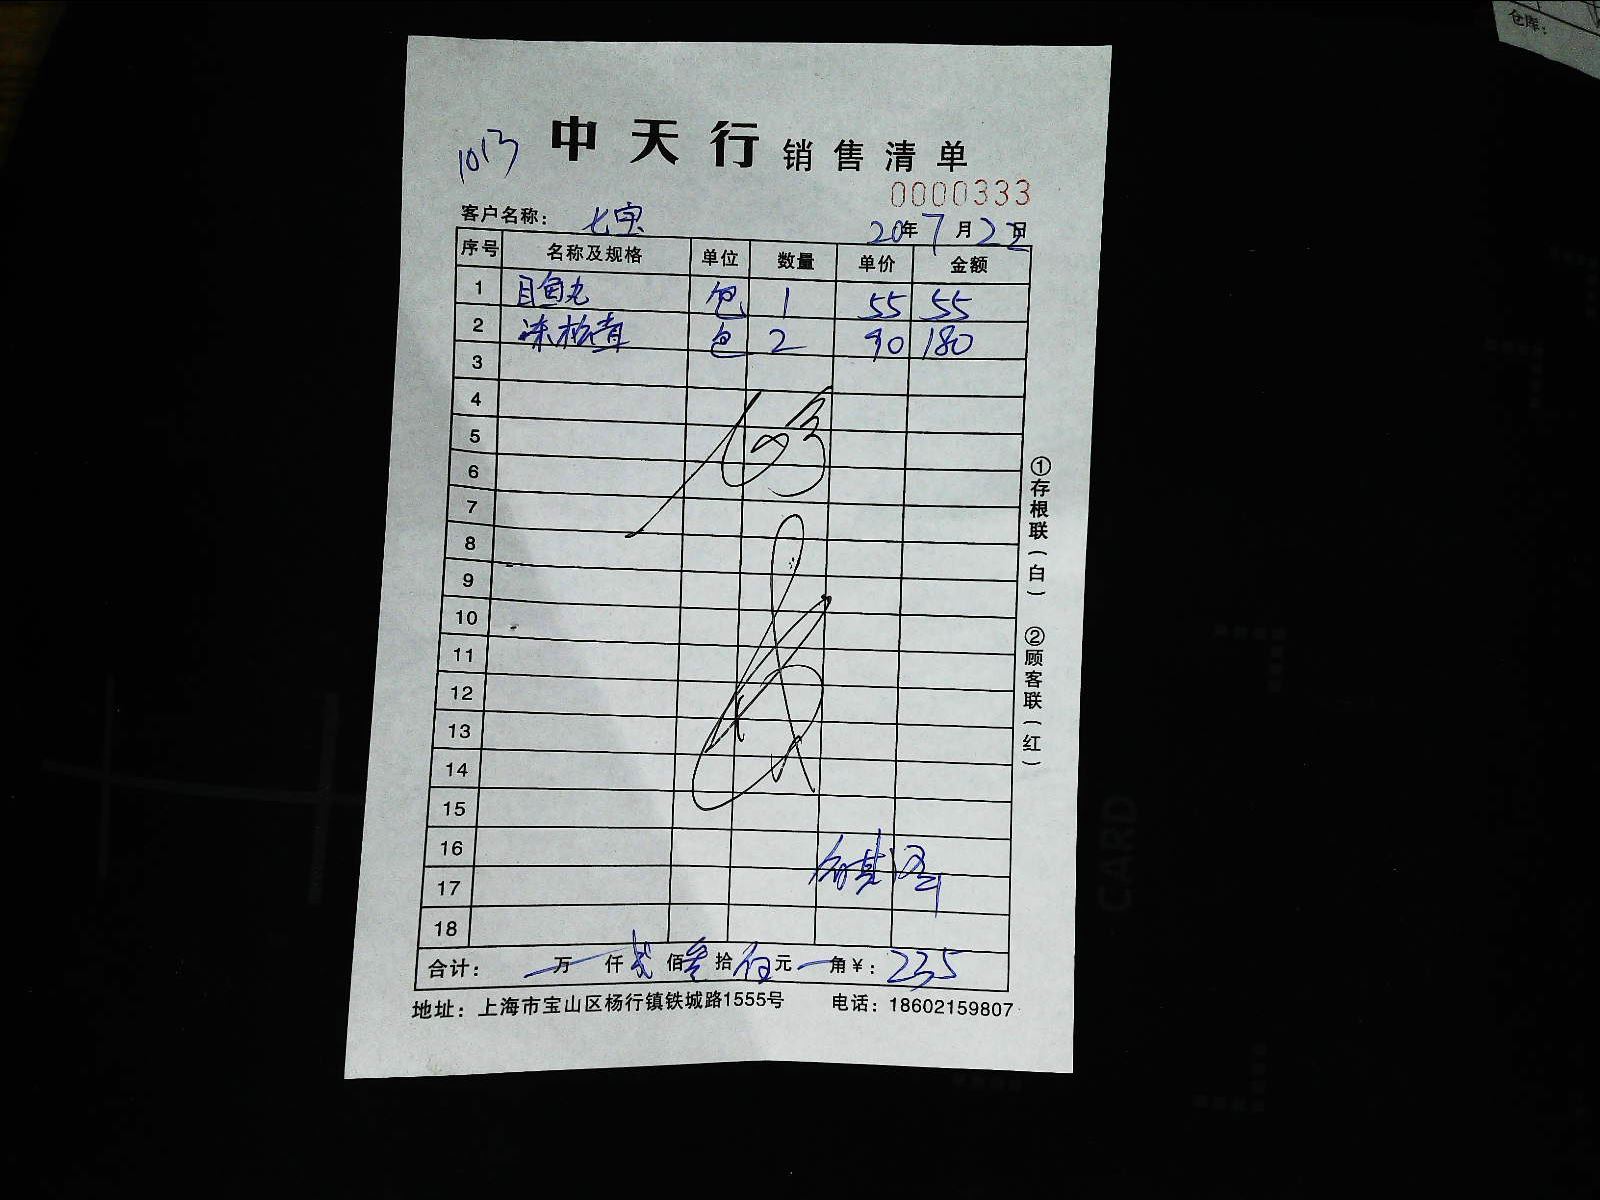 仓库：
1013
中天行 销售清单
0000333
客户名称： 七宝 20年7月22日
序号 名称及规格 单位 数量 单价 金额
1 目鱼丸 包 1 55 55
2 冻松茸 包 2 90 180
3
4
5
6
7
8
9
10
11
12
13
14
15
16
17
18
合计： 万 仟 贰 佰 叁 拾 伍 元 角 ¥： 235
地址：上海市宝山区杨行镇铁城路1555号 电话：18602159807
①存根联（白） ②顾客联（红）
CARD